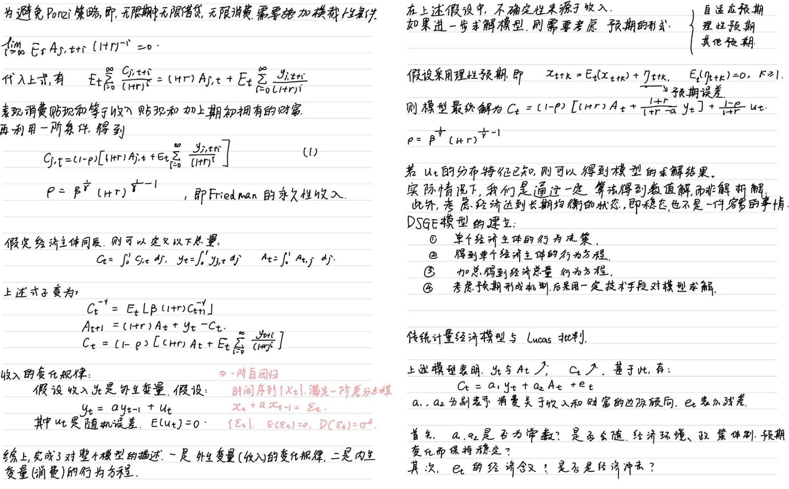 为避免 Ponzi 策略, 即, 无限期中无限借贷, 无限消费, 需要施加横截性条件.
lim_{i→∞} E_t A_{j,t+i} (1+r)^{-i} = 0.
代入上式, 有 E_t Σ_{i=0}^{∞} C_{j,t+i}/(1+r)^i = (1+r) A_{j,t} + E_t Σ_{i=0}^{∞} y_{j,t+i}/(1+r)^i
表现消费贴现和等于收入贴现和加上期初拥有的财富.
再利用一阶条件, 得到
C_{j,t} = (1-ρ)[(1+r)A_{j,t} + E_t Σ_{i=0}^{∞} y_{j,t+i}/(1+r)^i] (1)
ρ = β^{1/γ} (1+r)^{1/γ - 1}, 即 Friedman 的永久性收入.
假定经济主体同质, 则可以定义以下总量.
C_t = ∫_0^1 C_{j,t} dj. y_t = ∫_0^1 y_{j,t} dj A_t = ∫_0^1 A_{t,j} dj.
上述式子变为:
C_t^{-γ} = E_t[β(1+r)C_{t+1}^{-γ}]
A_{t+1} = (1+r)A_t + y_t - C_t.
C_t = (1-ρ)[(1+r)A_t + E_t Σ_{i=0}^{∞} y_{t+i}/(1+r)^i]
收入的变化规律:
⇒ 一阶自回归
假设收入 y_t 是外生变量, 假设:
时间序列 {X_t}, 满足一阶差分方程
y_t = a y_{t-1} + u_t
x_t + a x_{t-1} = ε_t.
其中 u_t 是随机误差. E(u_t) = 0.
{ε_t}, E(ε_t)=0, D(ε_t)=σ².
综上, 完成了对整个模型的描述. 一是外生变量(收入)的变化规律, 二是内生
变量(消费)的行为方程.
在上述假设中, 不确定性来源于收入.
如果进一步求解模型, 则需要考虑 预期的形式.
自适应预期
理性预期
其他预期
假设采用理性预期. 即 x_{t+k} = E_t(x_{t+k}) + η_{t+k}, E_t(η_{t+k}) = 0, k≥1.
→ 预期误差
则模型最终解为 C_t = (1-ρ)[(1+r)A_t + (1+r)/(1+r-a) y_t] + (1-ρ)/(1+r) u_t.
ρ = β^{1/γ} (1+r)^{1/γ - 1}
若 u_t 的分布特征已知, 则可以得到模型的求解结果.
实际情况下, 我们是通过一定算法得到数值解, 而非解析解.
此外, 考虑经济达到长期均衡的状态, 即稳态, 也不是一件容易的事情.
DSGE 模型的建立:
① 单个经济主体的行为决策.
② 得到单个经济主体的行为方程.
③ 加总得到经济总量行为方程.
④ 考虑预期形成机制, 后采用一定技术手段对模型求解.
传统计量经济模型与 Lucas 批判.
上述模型表明, y_t 与 A_t ↗, C_t ↗. 基于此, 有:
C_t = a_1 y_t + a_2 A_t + e_t
a_1, a_2 分别表示消费关于收入和财富的边际倾向. e_t 表示残差.
首先, a_1, a_2 是否为常数? 是否会随经济环境、政策体制、预期
变化而保持稳定?
其次, e_t 的经济含义? 是否是经济冲击?